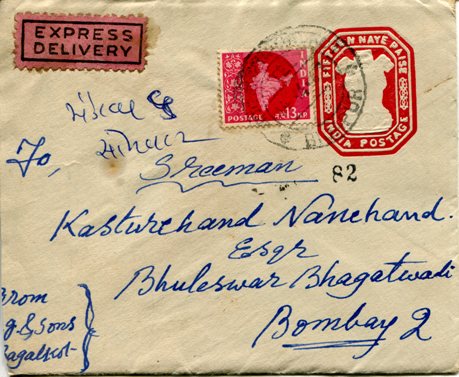 EXPRESS
DELIVERY
INDIA
POSTAGE 13 NP
FIFTEEN NAYE PAISE
INDIA POSTAGE
82
To,
Sreeman
Kasturchand Nanchand.
Esqr
Bhuleswar Bhagatwadi
Bombay 2
From
& Sons
Bagalkot